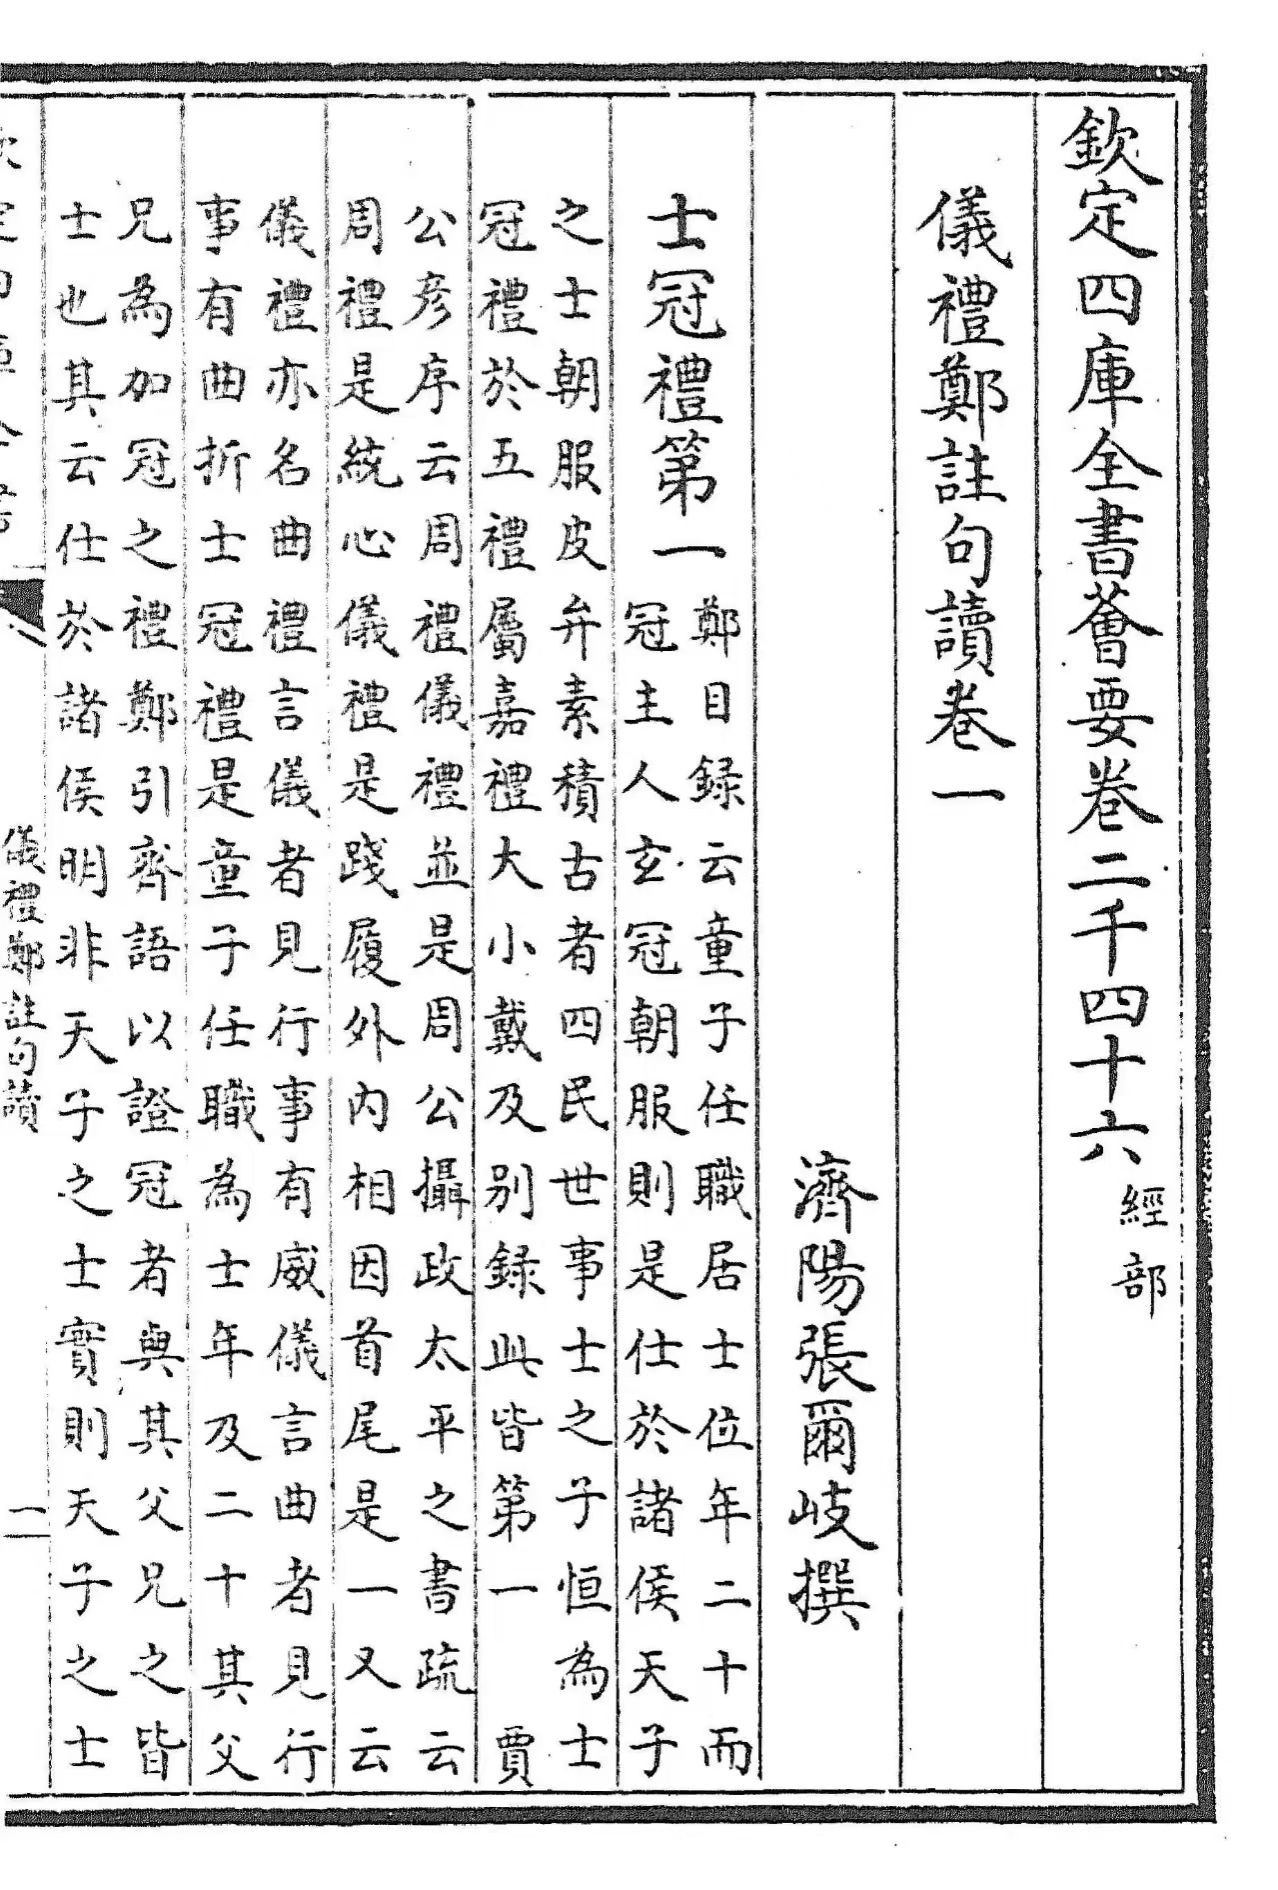 欽定四庫全書薈要卷二千四十六經部
儀禮鄭註句讀卷一
濟陽張爾岐撰
士冠禮第一
鄭目録云童子任職居士位年二十而
冠主人玄冠朝服則是仕於諸侯天子
之士朝服皮弁素積古者四民世事士之子恒為士
冠禮於五禮屬嘉禮大小戴及别録此皆第一 賈
公彥序云周禮儀禮並是周公攝政太平之書疏云
周禮是統心儀禮是踐履外内相因首尾是一又云
儀禮亦名曲禮言儀者見行事有威儀言曲者見行
事有曲折士冠禮是童子任職為士年及二十其父
兄為加冠之禮鄭引齊語以證冠者與其父兄之皆
士也其云仕於諸侯明非天子之士實則天子之士
儀禮鄭註句讀
一